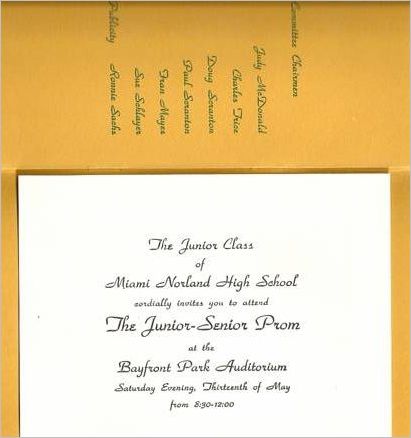 Committee Chairmen
Judy McDonald
Charles Trice
Doug Scranton
Paul Scranton
Fran Mayer
Sue Schlayer
Publicity Ronnie Sachs
The Junior Class
of
Miami Norland High School
cordially invites you to attend
The Junior-Senior Prom
at the
Bayfront Park Auditorium
Saturday Evening, Thirteenth of May
from 8:30-12:00